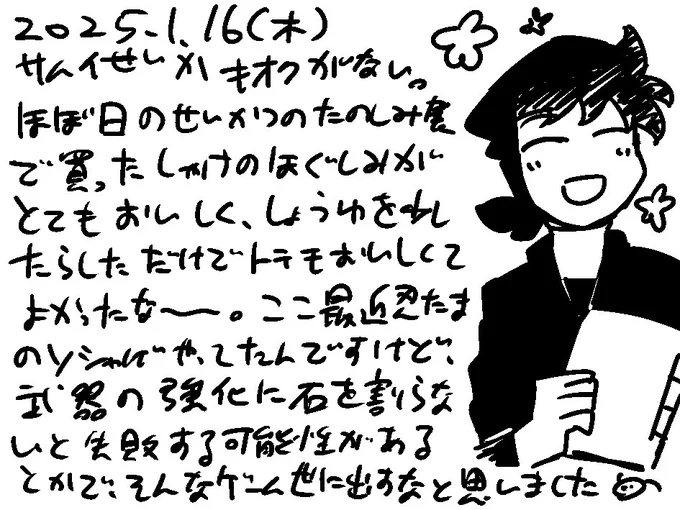 2025.1.16(木)
サムイせいかキオクがない。
ほぼ日のせいかつのたのしみ展
で買ったしゃけのほぐしみが
とてもおいしく、しょうゆを少し
たらしただけでトテモおいしくて
よかったな〜〜。ここ最近忍たま
のソシャゲやってたんですけど、
武器の強化に石を割らな
いと失敗する可能性がある
とかで、そんなゲーム世に出すなと思いました